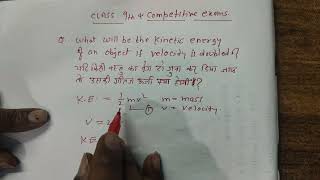 CLASS 9th & Competitive exams
Q. What will be the kinetic energy
of an object if velocity is doubled?
यदि किसी वस्तु का वेग दो गुना कर दिया जाय
तो उसकी गतिज ऊर्जा क्या होगी?
K.E. = 1/2 mv² m = mass
① v = velocity
V = 2
KE